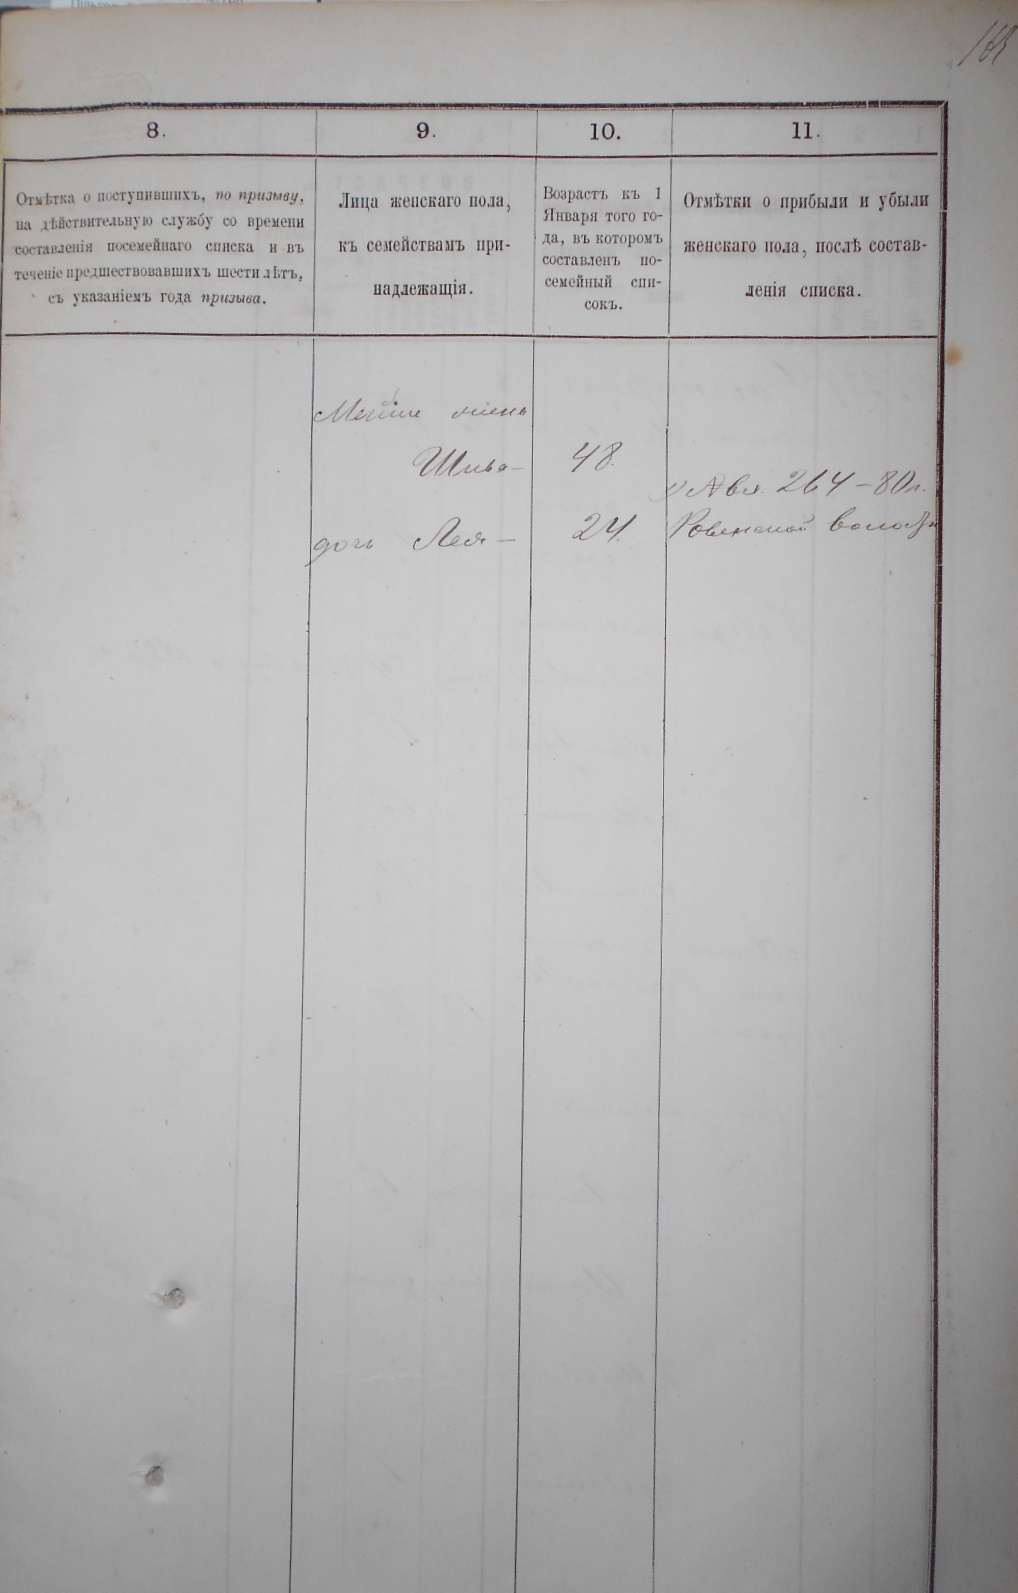 8.
9.
10.
11.
Отмѣтка о поступившихъ, по призыву,
на дѣйствительную службу со времени
составленія посемейнаго списка и въ
теченіе предшествовавшихъ шести лѣтъ,
съ указаніемъ года призыва.
Лица женскаго пола,
къ семействамъ при-
надлежащія.
Возрастъ къ 1
Января того го-
да, въ которомъ
составленъ по-
семейный спи-
сокъ.
Отмѣтки о прибыли и убыли
женскаго пола, послѣ состав-
ленія списка.
48.
264-80
дочь Лея - 24.